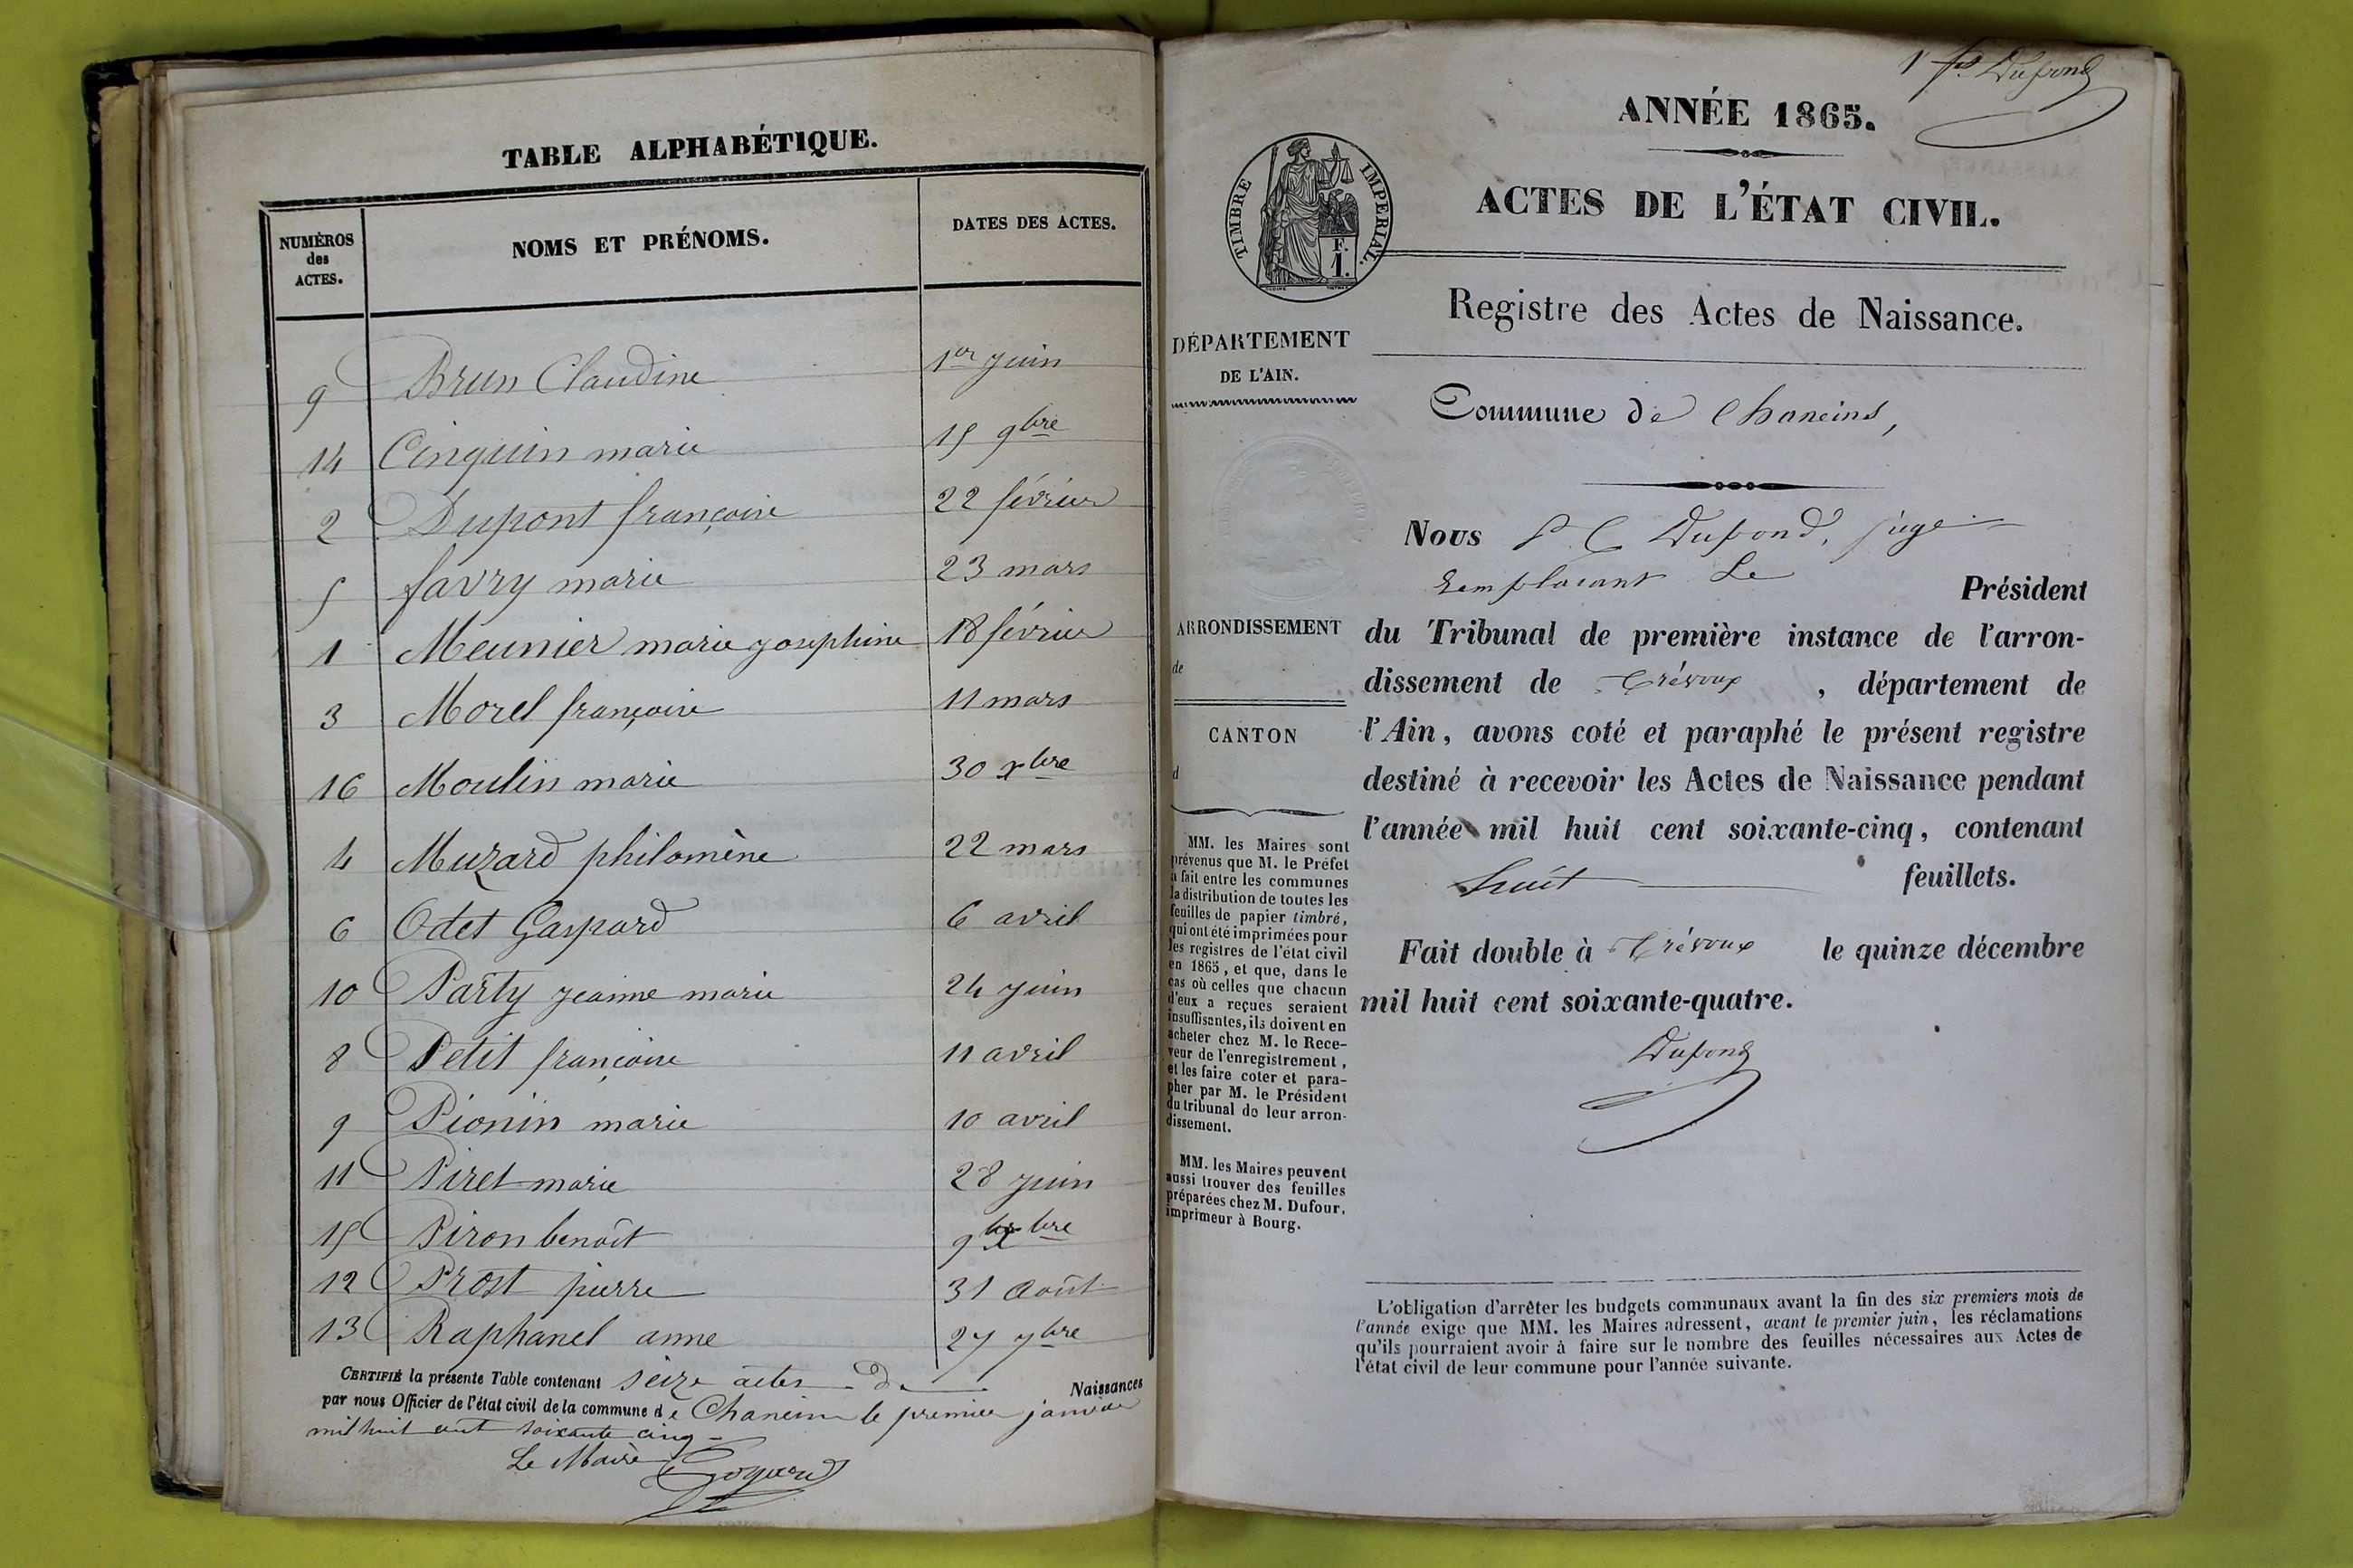 TABLE ALPHABÉTIQUE.
NUMÉROS des ACTES. NOMS ET PRÉNOMS. DATES DES ACTES.
9 Brun Claudine 1er juin
14 Cinquin marie 15 9bre
2 Dupont françoise 22 février
5 favry marie 23 mars
1 Meunier marie josephine 18 février
3 Morel françoise 11 mars
16 Moulin marie 30 xbre
4 Muzard philomène 22 mars
6 Odet Gaspard 6 avril
10 Party jeanne marie 24 juin
8 Petit françoise 11 avril
9 Pionin marie 10 avril
11 Piret marie 28 juin
15 Piron benoît 9 xbre
12 Prost pierre 31 Août
13 Raphanel anne 27 7bre
CERTIFIÉ la présente Table contenant seize actes de Naissances
par nous Officier de l'état civil de la commune de Chaneins le premier janvier
mil huit cent soixante cinq
Le Maire
1er f. Dupond
ANNÉE 1865.
ACTES DE L'ÉTAT CIVIL.
TIMBRE IMPERIAL.
F.
1.
Registre des Actes de Naissance.
DÉPARTEMENT
DE L'AIN.
Commune de Chaneins,
Nous Dupond, juge
remplacant Le Président
ARRONDISSEMENT
de
CANTON
d
du Tribunal de première instance de l'arron-
dissement de Trévoux, département de
l'Ain, avons coté et paraphé le présent registre
destiné à recevoir les Actes de Naissance pendant
l'année mil huit cent soixante-cinq, contenant
huit feuillets.
Fait double à Trévoux le quinze décembre
mil huit cent soixante-quatre.
Dupond
MM. les Maires sont
prévenus que M. le Préfet
a fait entre les communes
la distribution de toutes les
feuilles de papier timbré,
qui ont été imprimées pour
les registres de l'état civil
en 1865, et que, dans le
cas où celles que chacun
d'eux a reçues seraient
insuffisantes, ils doivent en
acheter chez M. le Rece-
veur de l'enregistrement,
et les faire coter et para-
pher par M. le Président
du tribunal de leur arron-
dissement.
MM. les Maires peuvent
aussi trouver des feuilles
préparées chez M. Dufour,
imprimeur à Bourg.
L'obligation d'arrêter les budgets communaux avant la fin des six premiers mois de
l'année exige que MM. les Maires adressent, avant le premier juin, les réclamations
qu'ils pourraient avoir à faire sur le nombre des feuilles nécessaires aux Actes de
l'état civil de leur commune pour l'année suivante.